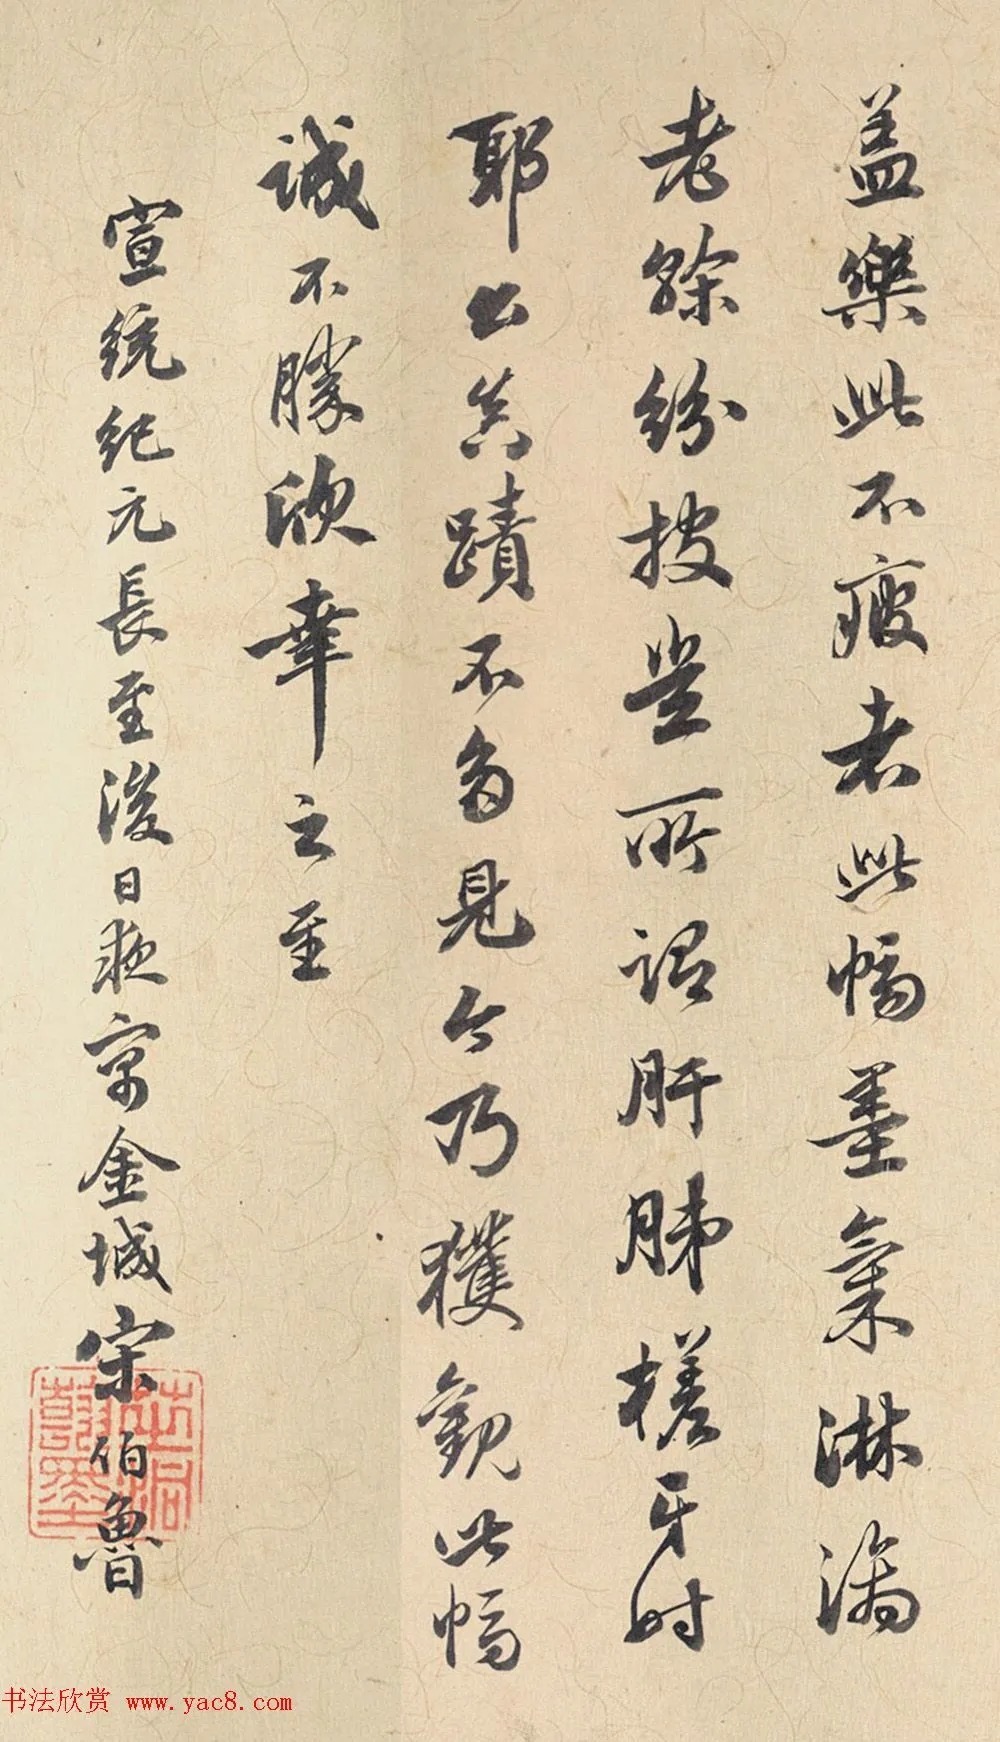 蓋樂此不疲者此幅墨氣淋漓
老餘紛披豈所謂肝肺槎牙時
耶公真蹟不多見今乃獲觀此幅
誠不勝欣幸之至
宣統紀元長至後日題寓金城宋伯魯
书法欣赏 www.yac8.com